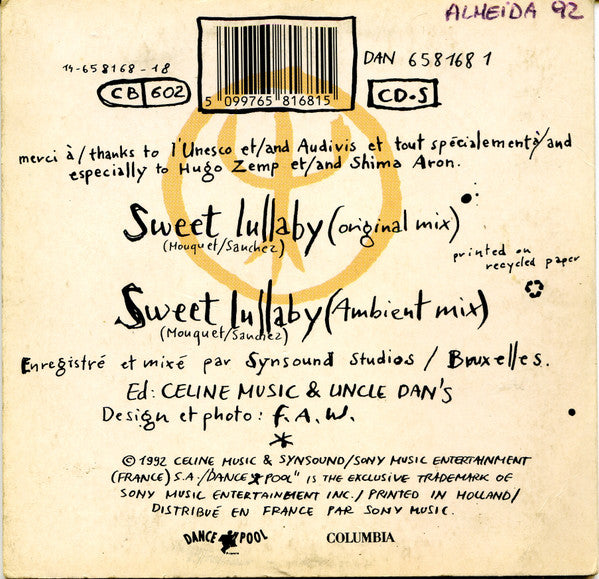 ALMEIDA 92
14-658168-18
DAN 658168 1
CB 602
CD-S
5 099765 816815
merci à/thanks to l'Unesco et/and Audivis et tout spécialement à/and
especially to Hugo Zemp et/and Shima Aron.
Sweet lullaby (original mix)
(Mouquet/Sanchez)
printed on
recycled paper
Sweet lullaby (Ambient mix)
(Mouquet/Sanchez)
Enregistré et mixé par Synsound Studios / Bruxelles.
Ed: CELINE MUSIC & UNCLE DAN'S
Design et photo: F.A.W.
© 1992 CELINE MUSIC & SYNSOUND/SONY MUSIC ENTERTAINMENT
(FRANCE) S.A./DANCE POOL" IS THE EXCLUSIVE TRADEMARK OF
SONY MUSIC ENTERTAINEMENT INC./PRINTED IN HOLLAND/
DISTRIBUÉ EN FRANCE PAR SONY MUSIC.
DANCE POOL COLUMBIA